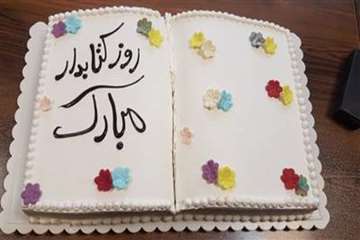 روز کتابدار
مبارک